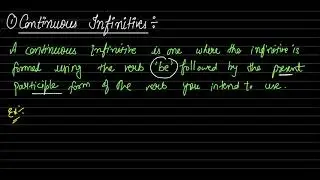 ① Continuous Infinitives :-
A continuous Infinitive is one where the infinitive is
formed using the verb 'be' followed by the present
participle form of the verb you intend to use.
Ex:-